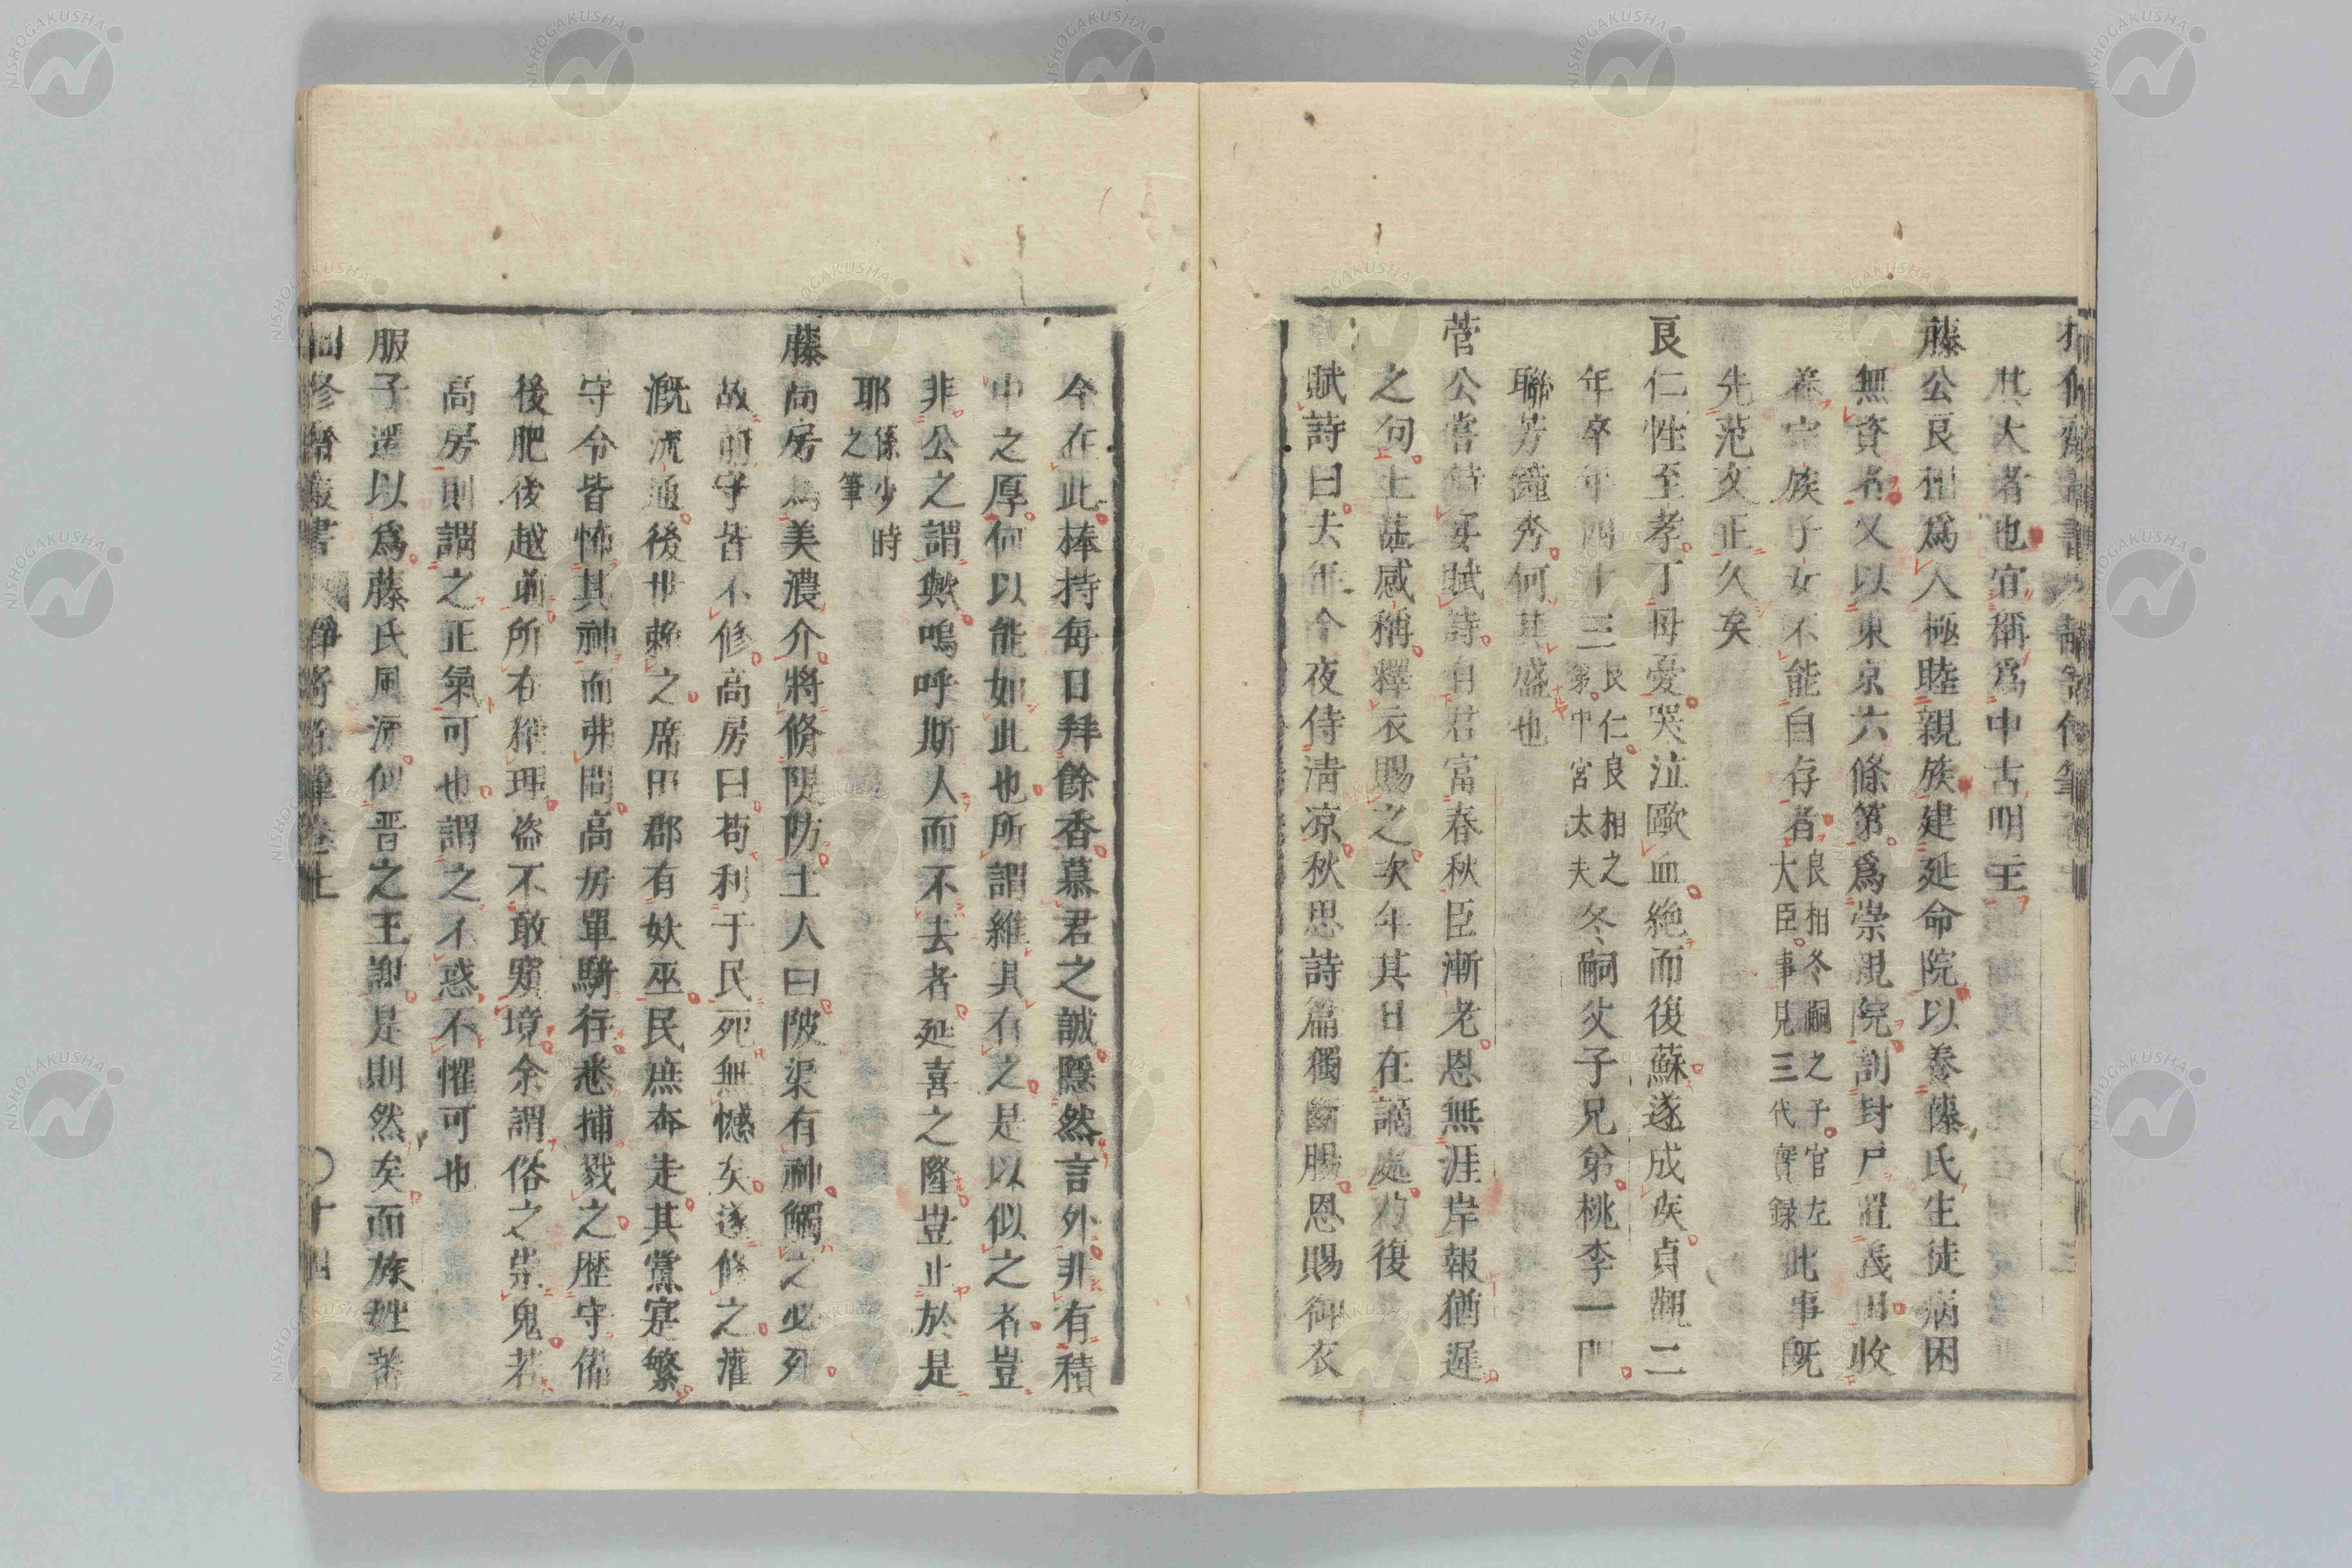 其大者也宜稱爲中古明王
藤公良相爲人極睦親族建延命院以養藤氏生徒病困
無資者又以東京六條第爲崇親院割封戸置義田收
養宗族子女不能自存者良相冬嗣之子官左
大臣事見三代實録此事既
先范文正久矣
良仁性至孝丁母憂哭泣歐血絶而後蘇遂成疾貞觀二
年卒年四十三良仁良相之
弟中宮太夫冬嗣父子兄弟桃李一門
聯芳鐘秀何其盛也
菅公嘗侍宴賦詩曰君富春秋臣漸老恩無涯岸報猶遲
之句上甚感稱釋衣賜之次年其日在謫處復
賦詩曰去年今夜侍清凉秋思詩篇獨斷腸恩賜御衣
今在此棒持毎日拜餘香慕君之誠隱然言外非有積
中之厚何以能如此也所謂維其有之是以似之者豈
非公之謂歟嗚呼斯人而不去者延喜之隆豈止於是
耶係少時
之筆
藤高房爲美濃介將脩隄防土人曰陂渠有神觸之必死
故前守皆不修高房曰苟利于民死無憾矣遂修之灌
漑流通後世頼之席田郡有妖巫民庶奔走其黨寔繁
守令皆怖其神而弗問高房單騎行悉捕戮之歴守備
後肥後越前所在稱理盗不敢窺境余謂俗之祟鬼若
高房則謂之正氣可也謂之不惑不懼可也
服子遷以爲藤氏風流似晋之王謝是則然矣而族姓蕃
十四